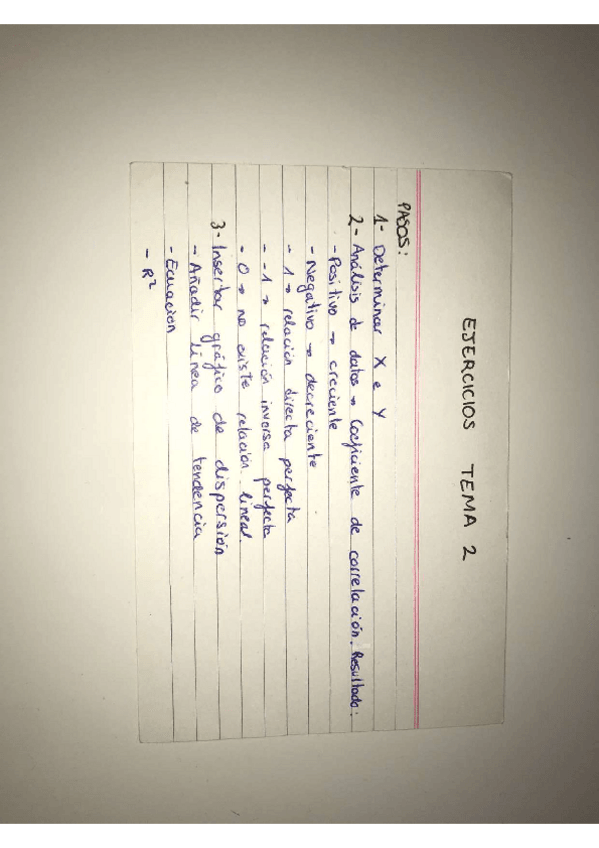 EJERCICIOS TEMA 2
PASOS:
1- Determinar X e Y
2- Análisis de datos → Coeficiente de correlación. Resultado:
- Positivo → creciente
- Negativo → decreciente
- 1 → relación directa perfecta
- -1 → relación inversa perfecta
- 0 → no existe relación lineal.
3- Insertar gráfico de dispersión
- Añadir línea de tendencia
- Ecuación
- R²